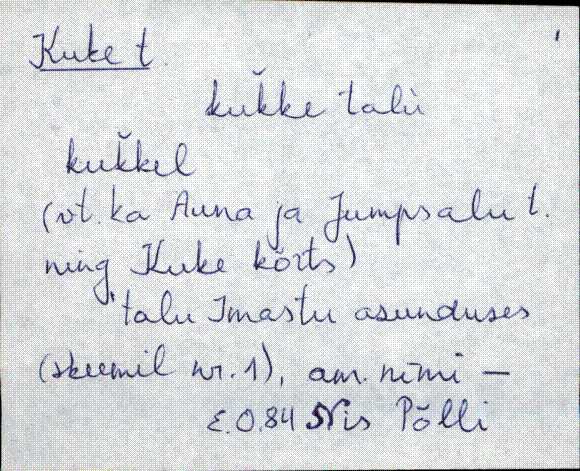 Kuke t.
kuk̆ke talu
kuk̆kel
(vt. ka Auna ja Jumpsalu t.
ning Kuke kõrts)
talu Imastu asunduses
(skeemil nr. 1), am. nimi –
E.O.84 Nis Põlli